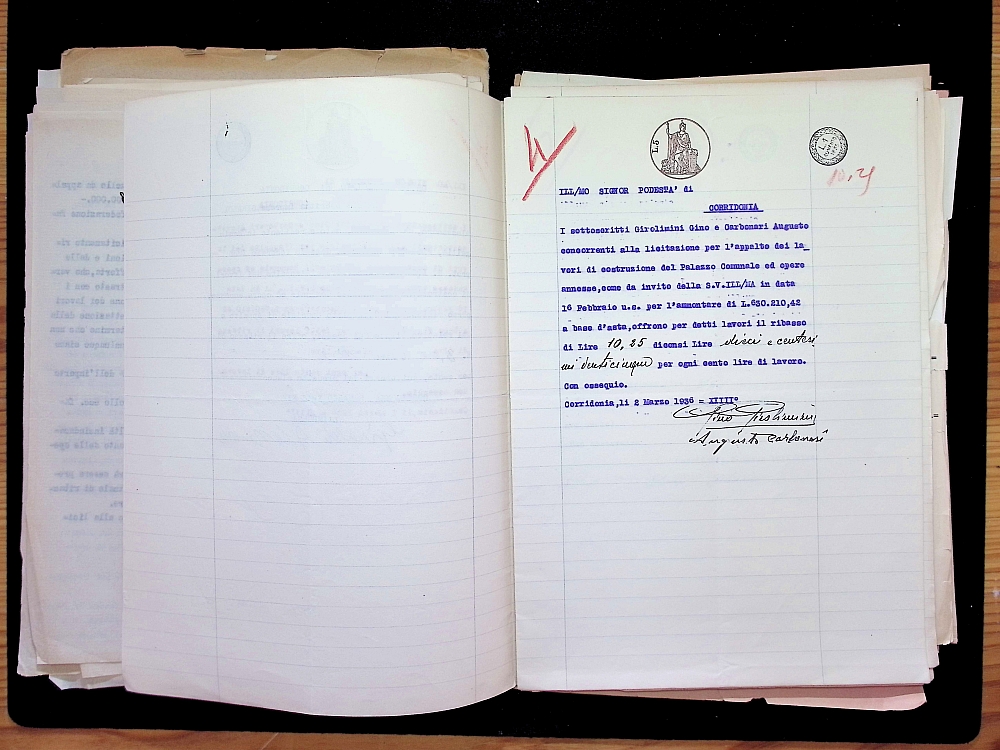 4
L.5
L.1
10.25
ILL/MO SIGNOR PODESTA' di
CORRIDONIA
I sottoscritti Girolimini Gino e Carbonari Augusto
concorrenti alla licitazione per l'appalto dei la_
vori di costruzione del Palazzo Comunale ed opere
annesse,come da invito della S.V.ILL/MA in data
16 Febbraio u.s. per l'ammontare di L.630.210,42
a base d'asta,offrono per detti lavori il ribasso
di Lire 10,25 diconsi Lire dieci e centesi
mi venticinque per ogni cento lire di lavoro.
Con ossequio.
Corridonia,li 2 Marzo 1936 = XIIII°
Gino Girolimini
Augusto Carbonari